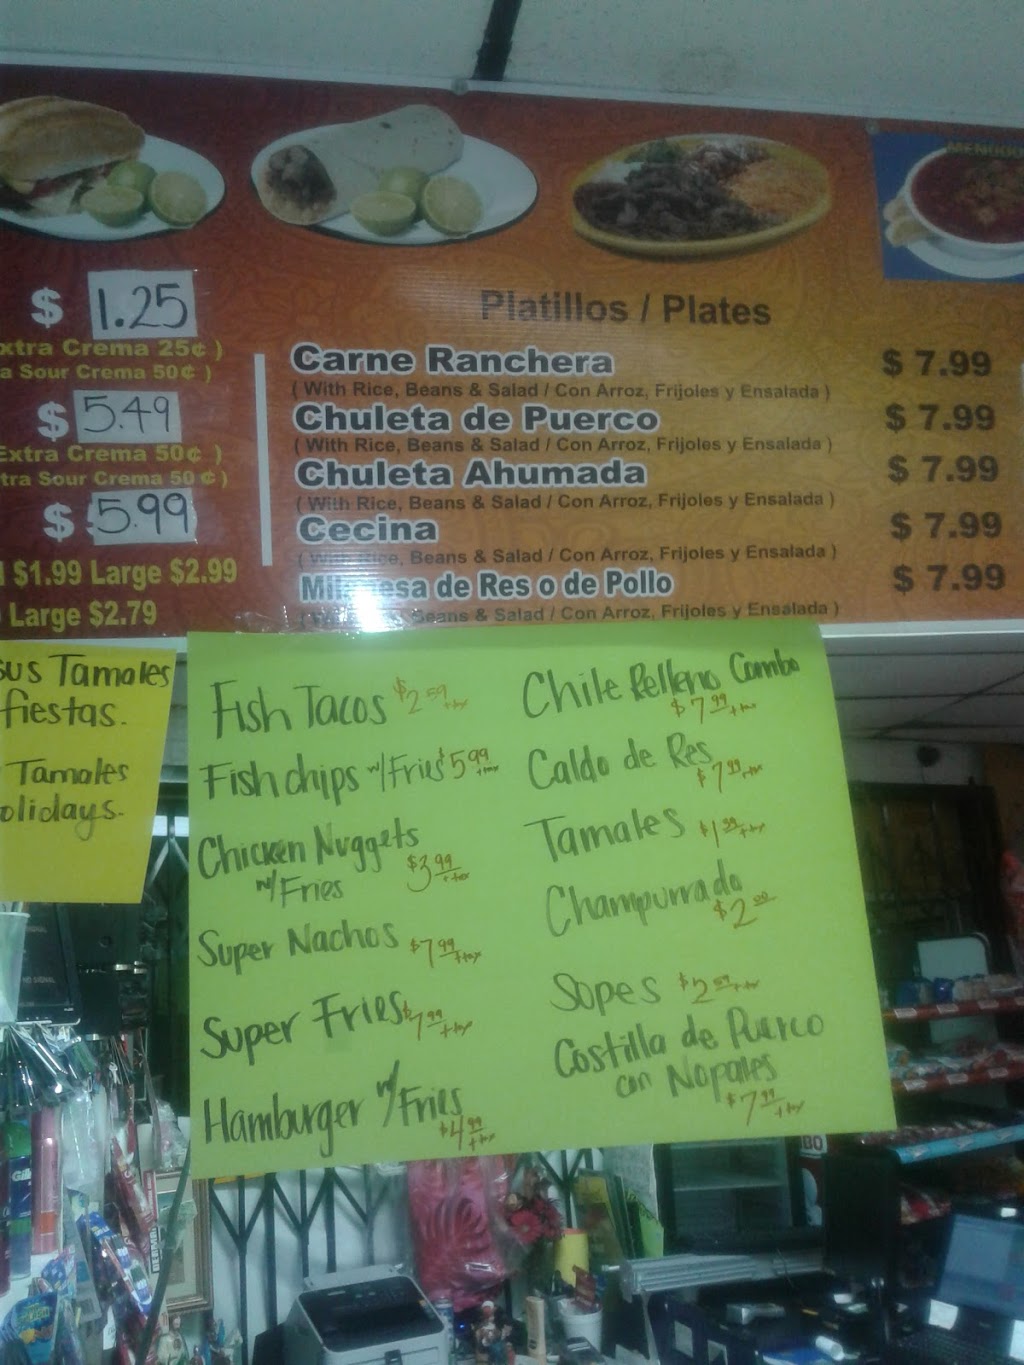 MENUDO
$ 1.25
xtra Crema 25¢ )
a Sour Crema 50¢ )
$ 5.49
Extra Crema 50¢ )
tra Sour Crema 50 ¢ )
$ 5.99
$1.99 Large $2.99
Large $2.79
Platillos / Plates
Carne Ranchera $ 7.99
( With Rice, Beans & Salad / Con Arroz, Frijoles y Ensalada )
Chuleta de Puerco $ 7.99
( With Rice, Beans & Salad / Con Arroz, Frijoles y Ensalada )
Chuleta Ahumada $ 7.99
( With Rice, Beans & Salad / Con Arroz, Frijoles y Ensalada )
Cecina $ 7.99
( With Rice, Beans & Salad / Con Arroz, Frijoles y Ensalada )
Milanesa de Res o de Pollo $ 7.99
Beans & Salad / Con Arroz, Frijoles y Ensalada )
sus Tamales
fiestas.
Tamales
olidays.
Fish Tacos $2.59 +tax
Fish chips w/Fries $5.99 +tax
Chicken Nuggets
w/Fries $3.99 +tax
Super Nachos $7.99 +tax
Super Fries $7.99 +tax
Hamburger w/Fries
$4.99 +tax
Chile Relleno Combo
$7.99 +tax
Caldo de Res
$7.99 +tax
Tamales $1.99 +tax
Champurrado
$2.00
Sopes $2.59 +tax
Costilla de Puerco
con Nopales
$7.99 +tax